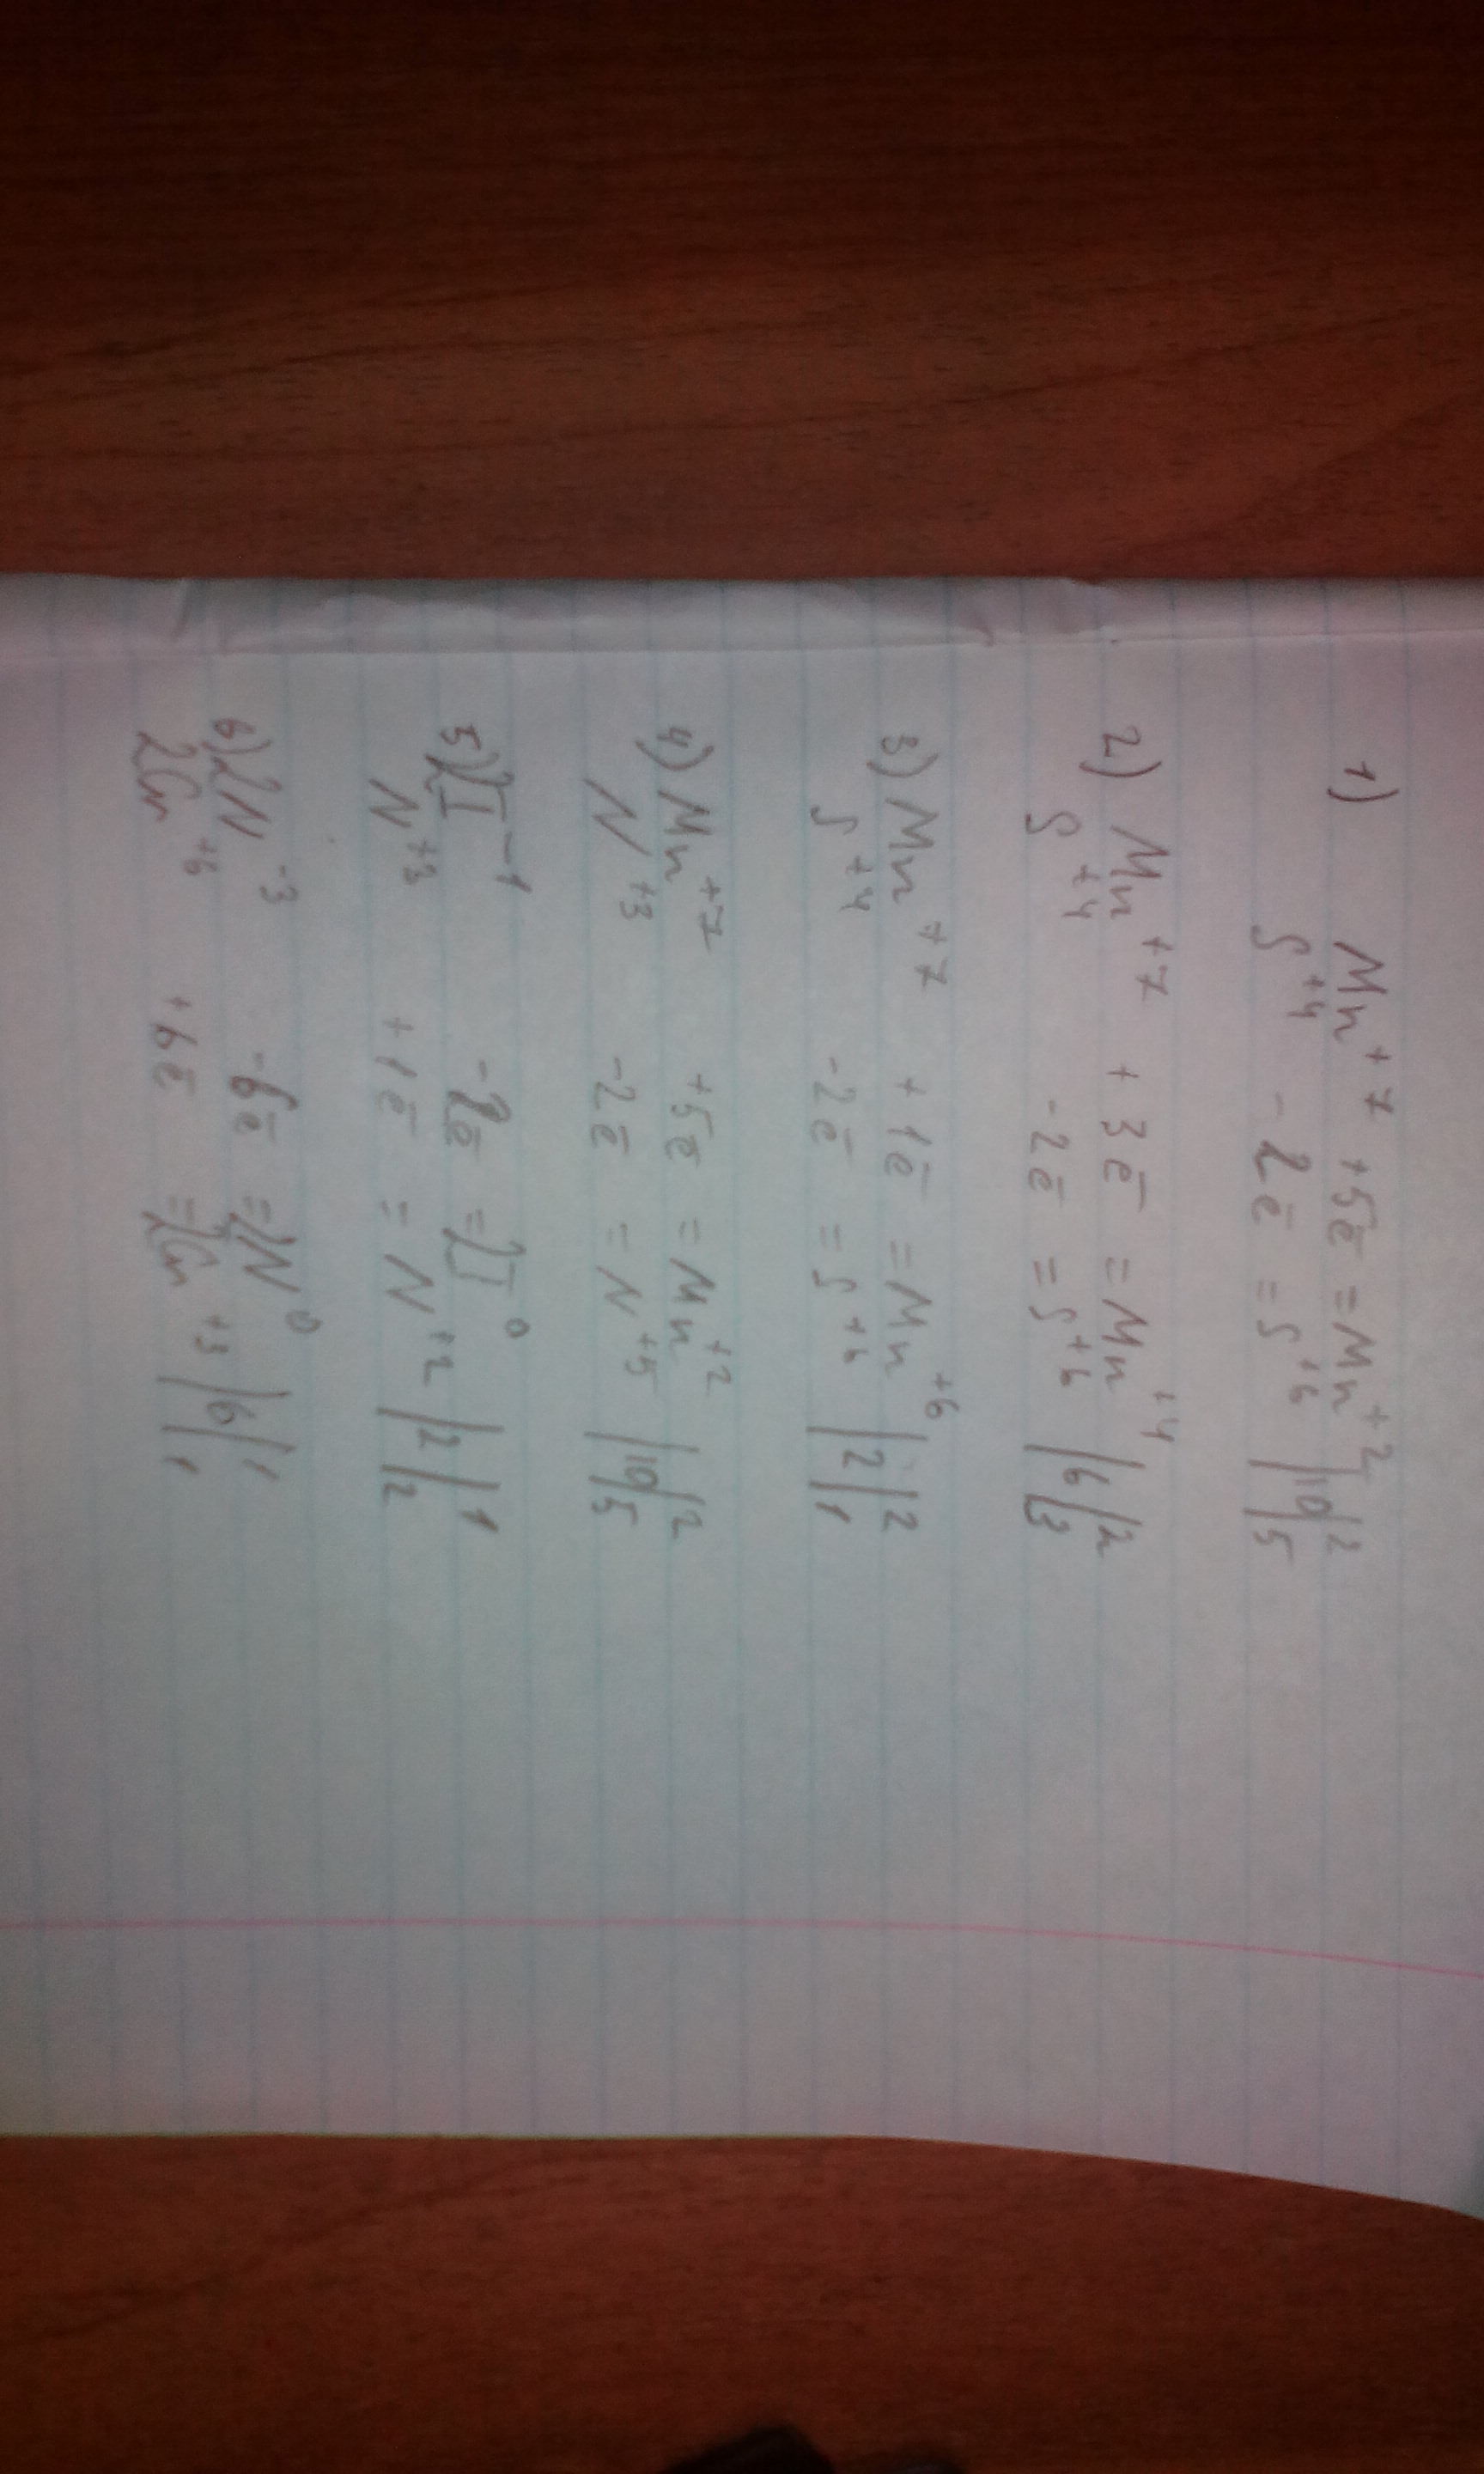 1) Mn⁺⁷ +5ē = Mn⁺² |10| 2
S⁺⁴ -2ē = S⁺⁶ | | 5
2) Mn⁺⁷ +3ē = Mn⁺⁴ |6| 2
S⁺⁴ -2ē = S⁺⁶ | | 3
3) Mn⁺⁷ +1ē = Mn⁺⁶ |2| 2
S⁺⁴ -2ē = S⁺⁶ | | 1
4) Mn⁺⁷ +5ē = Mn⁺² |10| 2
N⁺³ -2ē = N⁺⁵ | | 5
5) 2I⁻¹ -2ē = 2I⁰ |2| 1
N⁺³ +1ē = N⁺² | | 2
6) 2N⁻³ -6ē = 2N⁰ |6| 1
2Cr⁺⁶ +6ē = 2Cr⁺³ | | 1